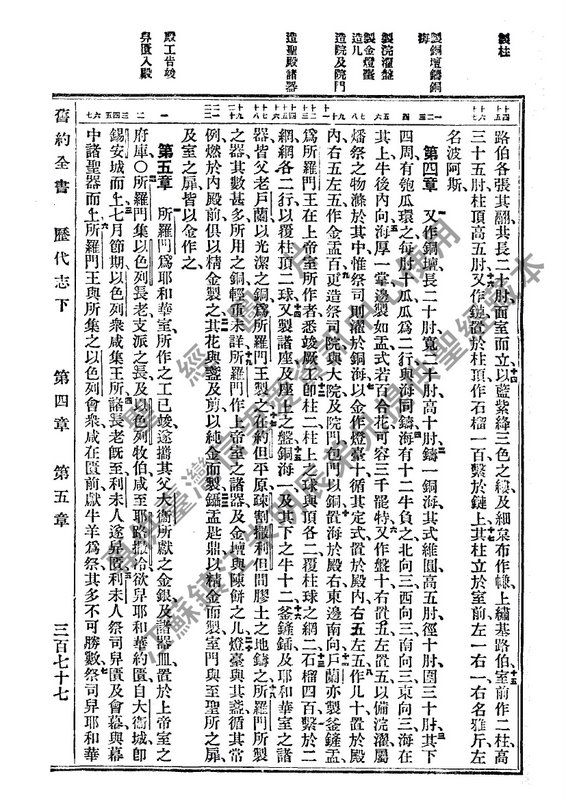 製柱
製銅壇鑄銅海
製浣濯盤
製金燈臺
造几
造院及院門
造聖殿諸器
殿工告竣
舁匱入殿
路伯各張其翮其長二十肘面室而立以藍紫絳三色之綫及細枲布作㡘上繡基路伯室前作二柱高
三十五肘柱頂高五肘又作鏈置於柱頂作石榴一百繫於鏈上其柱立於室前左一右一右名雅斤左
名波阿斯
第四章 又作銅壇長二十肘寬二十肘高十肘鑄一銅海其式維圓高五肘徑十肘圍三十肘其下
四周有匏瓜環之每肘十瓜瓜為二行與海同鑄海有十二牛負之北向三西向三南向三東向三海在
其上牛後內向海厚一掌邊製如盂式若百合花可容三千罷特又作盤十右置五左置五以備浣濯屬
燔祭之物滌於其中惟祭司則濯於銅海以金作燈臺十循其定式置於殿內右五左五作几十置於殿
內右五左五作金盂百更造祭司院與大院及院門包門以銅置海於殿右東邊南向戶蘭亦製釜鏟盂
爲所羅門王在上帝室所作者悉竣厥工卽柱二柱上之球與頂各二覆柱球之網二石榴四百繫於二
網網各二行以覆柱頂二球又製諸座及座上之盤銅海一及其下之牛十二釜鏟鍤及耶和華室之諸
器皆父老戶蘭以光潔之銅爲所羅門王製之在約但平原疎割撒利但間膠土之地鑄之所羅門所製
之器其數甚多所用之銅輕重未詳所羅門作上帝室之諸器及金壇與陳餅之几燈臺與其盞循其常
例燃於內殿前俱以精金製之其花與盞及剪以純金而製鑷盂匙鼎以精金而製室門與至聖所之扉
及室之扉皆以金作之
第五章 所羅門爲耶和華室所作之工已竣遂攜其父大衞所獻之金銀及諸器皿置於上帝室之
府庫〇所羅門集以色列長老支派之長及以色列牧伯咸至耶路撒冷欲舁耶和華約匱自大衞城卽
錫安城而上七月節期以色列衆咸集王所諸長老旣至利未人遂舁匱利未人祭司舁匱及會幕與幕
中諸聖器而上所羅門王與所集之以色列會衆咸在匱前獻牛羊爲祭其多不可勝數祭司舁耶和華
舊約全書 歷代志下 第四章 第五章 三百七十七